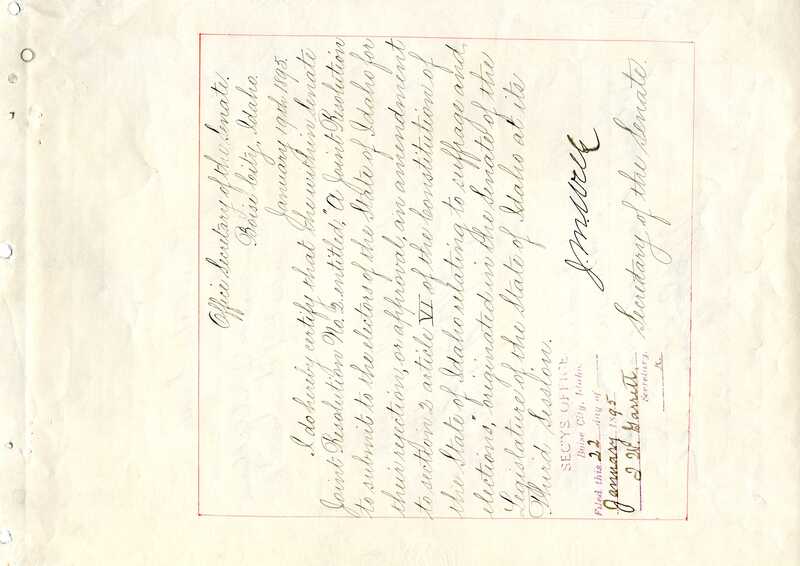 Office Secretary of the Senate.
Boise City, Idaho.
January 19th 1895.
I do hereby certify that the within Senate
Joint Resolution No. 2 entitled, "A Joint Resolution
to submit to the electors of the State of Idaho for
their rejection, or approval, an amendment
to section 2 article VI of the Constitution of
the State of Idaho relating to suffrage and
elections," originated in the Senate of the
Legislature of the State of Idaho at its
Third Session.
SEC'YS OFFICE
Boise City, Idaho.
Filed this 22 day of
January 1895
I. W. Garrett,
Secretary.
J. M. Wells
Secretary of the Senate.